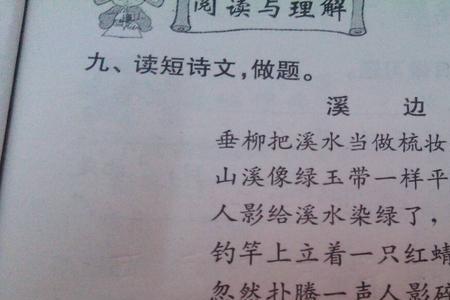 阅读与理解
九、读短诗文,做题。
溪 边
垂柳把溪水当做梳妆
山溪像绿玉带一样平
人影给溪水染绿了,
钓竿上立着一只红蜻
忽然扑腾一声人影碎